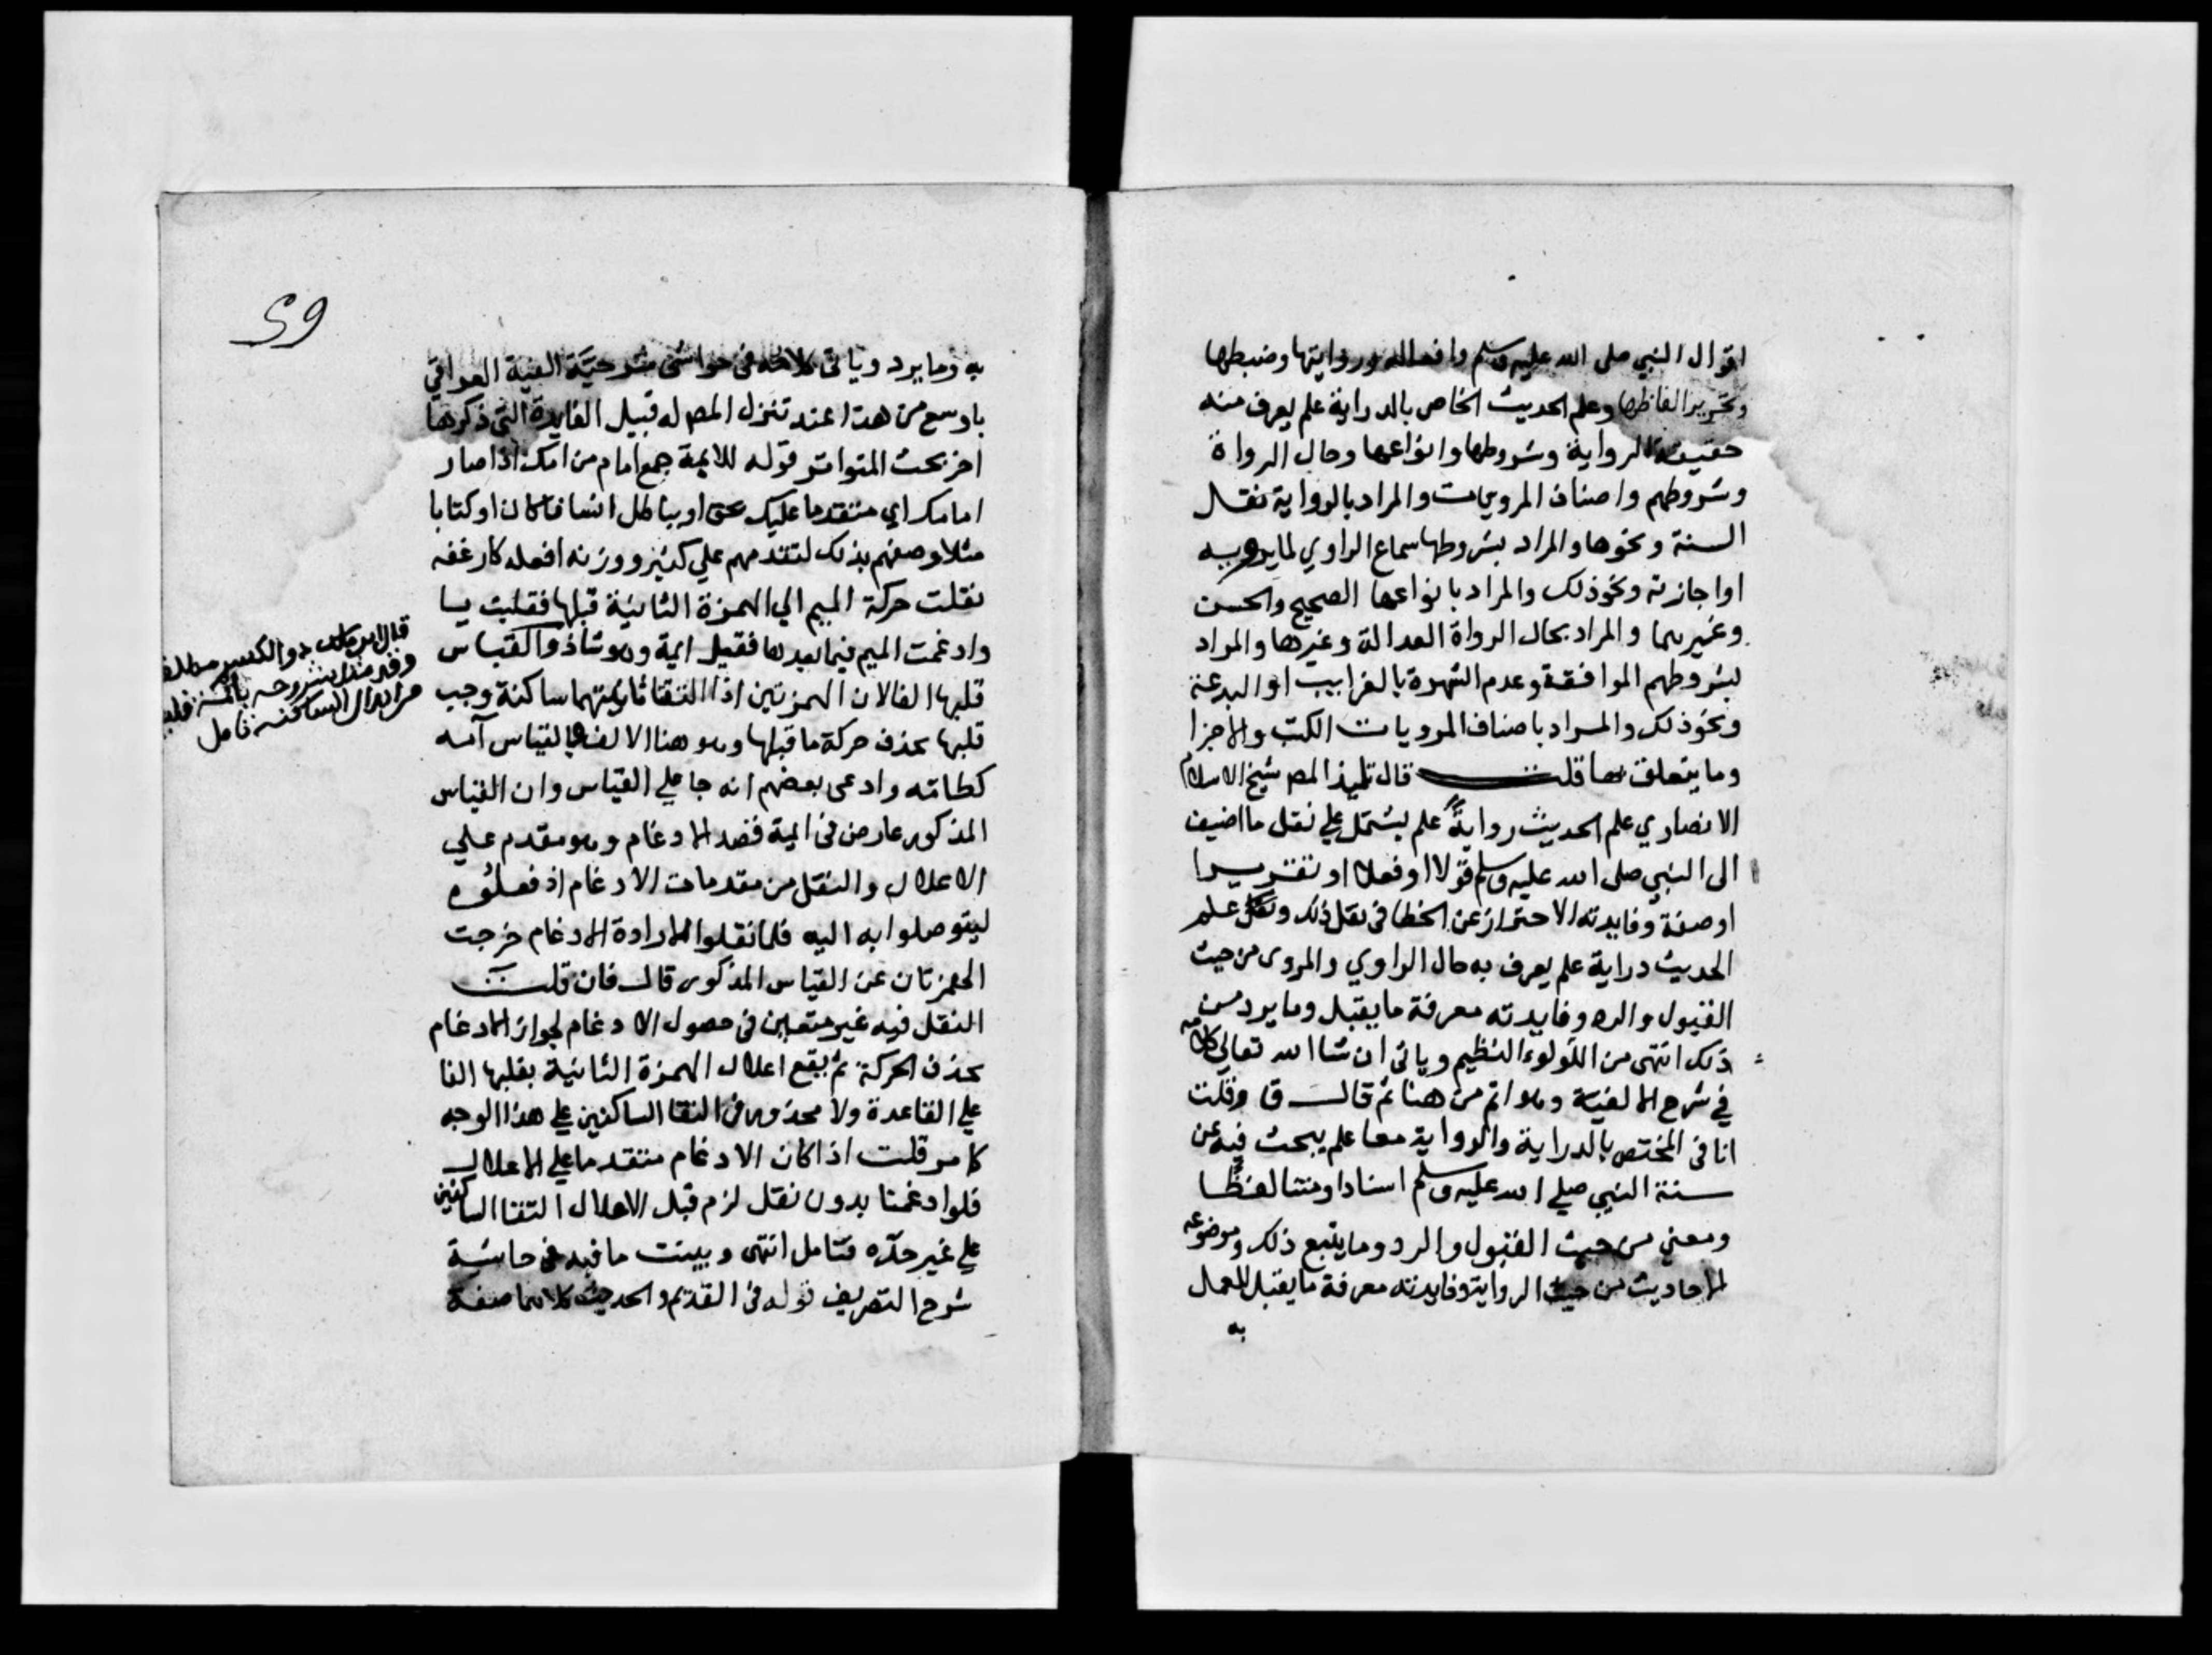 اقوال النبي صلى الله عليه وسلم وافعاله وروايتها وضبطها
وتحرير الفاظها وعلم الحديث الخاص بالدراية علم يعرف منه
حقيقة الرواية وشروطها وانواعها وحال الرواة
وشروطهم واصناف المرويات والمراد بالرواية نقل
السنة ونحوها والمراد بشروطها سماع الراوي لما يرويه
او اجازته ونحو ذلك والمراد بانواعها الصحيح والحسن
وغيرهما والمراد بحال الرواة العدالة وغيرها والمراد
بشروطهم الموافقة وعدم الشهرة بالغرايب او البدعة
ونحو ذلك والمراد باصناف المرويات الكتب والاجزا
وما يتعلق بها قلت قال تلميذ المص شيخ الاسلام
الانصاري علم الحديث رواية علم يشتمل علي نقل ما اضيف
الى النبي صلى الله عليه وسلم قولا او فعلا او تقريرا
او صفة وفايدته الاحتراز عن الخطا في نقل ذلك علم
الحديث دراية علم يعرف به حال الراوي والمروى من حيث
القبول والرد وفايدته معرفة ما يقبل وما يرد من
ذلك انتهى من اللولوء النظيم وياتى ان شا الله تعالي كلامه
في شرح الالفية وهو اتم من هنا ثم قال ق وقلت
انا فى المختص بالدراية والرواية معا علم يبحث فيه عن
سنة النبي صلي الله عليه وسلم اسنادا ومتنا لفظا
ومعني من حيث القبول والرد وما يتبع ذلك وموضوعه
الاحاديث من حيث الرواية وفايدته معرفة ما يقبل للعمل
به
59
به وما يرد وياتى كلامه فى حواشى شرحية الفية العراقي
باوسع من هذا عند تنزل المص له قبيل الفايدة التى ذكرها
اخر بحث المتواتر قوله للايمة جمع امام من امك اذا صار
امامك اي متقدما عليك بحق او بباطل انسانا كان او كتابا
مثلا وصفهم بذلك لتقدمهم علي كثير ووزنه افعله كارغفه
نقلت حركة الميم الي الهمزة الثانية قبلها فقلبت يا
وادغمت الميم فيما بعدها فقيل ايمة وهو شاذ والقياس
قلبها الفا لان الهمزتين اذا التقتا ثانيتهما ساكنة وجب
قلبها بحذف حركة ما قبلها وهو هنا الالف فالقياس آمه
كطامه وادعى بعضهم انه جا علي القياس وان القياس
المذكور عارض فى ايمة قصد الادغام وهو مقدم علي
الاعلال والنقل من مقدمات الادغام اذ فعلوه
ليتوصلوا به اليه فلما نقلوا لارادة الادغام خرجت
الهمزتان عن القياس المذكور قال فان قلت
النقل فيه غير متعين فى حصول الادغام لجواز الادغام
بحذف الحركة ثم يقع اعلال الهمزة الثانية بقلبها الفا
علي القاعدة ولا محذور فى التقا الساكنين علي هذا الوجه
كما مر قلت اذا كان الادغام متقدما علي الاعلال
فلو ادغمنا بدون نقل لزم قبل الاعلال التقا الساكنين
علي غير حده فتامل انتهى وبينت ما فيه فى حاشية
شرح التصريف قوله فى القديم والحديث كلاهما صفة
قال ابن مالك ذو الكسر مطلقا
من ابدال الساكنه تامل